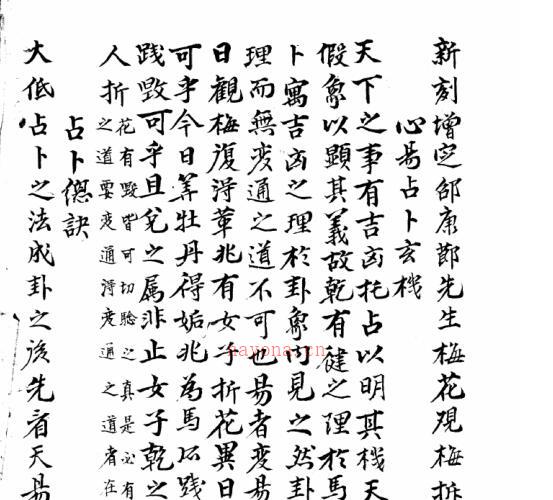 新刻增定邵康節先生梅花观梅拆
心易占卜玄機
天下之事有吉凶托占以明其機天
假象以顯其義故乾有健之理於馬
卜寓吉凶之理於卦象內見之然卦
理而無変通之道不可也易者変易
日觀梅復得革兆有女子折花異日
可乎今日筭牡丹得姤兆為馬所践
践毁可乎且兌之属非止女子乾之
人折花有毁皆可切驗之真是必有
之道要変通得変通之道者在
占卜總訣
大低占卜之法成卦之後先看天易
nayona.cn